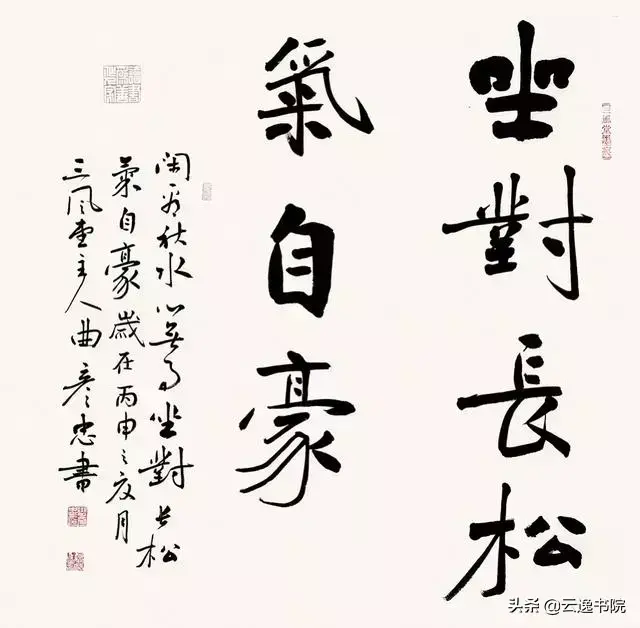 坐對長松
氣自豪
閑看秋水心無事坐對長松
氣自豪歲在丙申之夏月
三风堂主人曲彦忠書
头条 @云逸书院